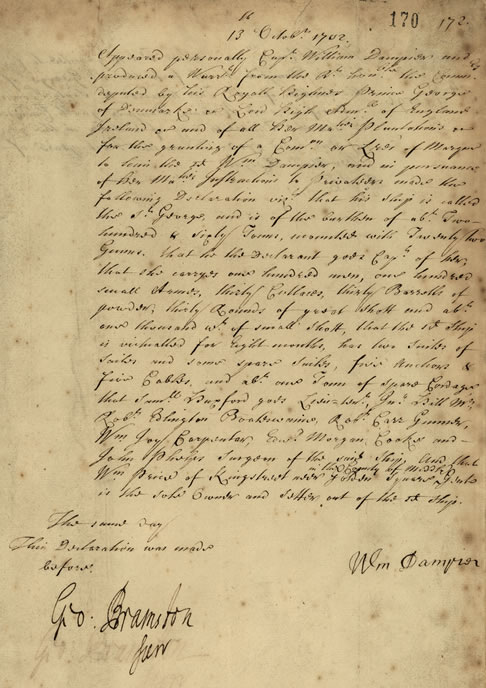 16
13 Octobr. 1702.
170 172
Appeared personally Capt. William Dampier and
produced a Warrt. from the Rt. Honble. the
deputed by his Royall Highness Prince George
of Denmarke &c Lord High Adm.ll of England
Ireland &c and of all Her Ma.ties Plantations &c
for the granting of a Com.on or Lres of Marque
to him the sd. Wm. Dampier, and in pursuance
of Her Ma.ties Instructions to Privateers made the
following Declaration vizt. that his Ship is called
the St. George, and is of the burthen of abt. Two-
hundred & Sixty Tonns, mounted with Twenty two
Gunns. that he the Declarant goes Capt. of her,
that she carryes one hundred men, one hundred
small Armes, thirty Cutlaces, thirty Barrells of
powder, thirty Rounds of great shott and abt.
one thousand wt. of small shott, that the sd. Ship
is victualled for Eight months, has two Suites of
Sailes and some spare Sailes, five Anchors &
five Cables, and abt. one Tonn of spare Cordage
that Samll. goes Lieutent. Jno. Hill Mr.
Robt. Boatswaine, Robt. Carr Gunner,
Wm. Carpenter, Edwd. Morgan, Cooke and
John Phelps Surgeon of the said Ship. And that
Wm. Price of Kingstreet neer Golden Square Gentn.
in the County of Middx.
is the Sole Owner and Setter out of the sd. Ship.
The same day
This Declaration was made
before
Wm Dampier
Geo: Bramston
Surr